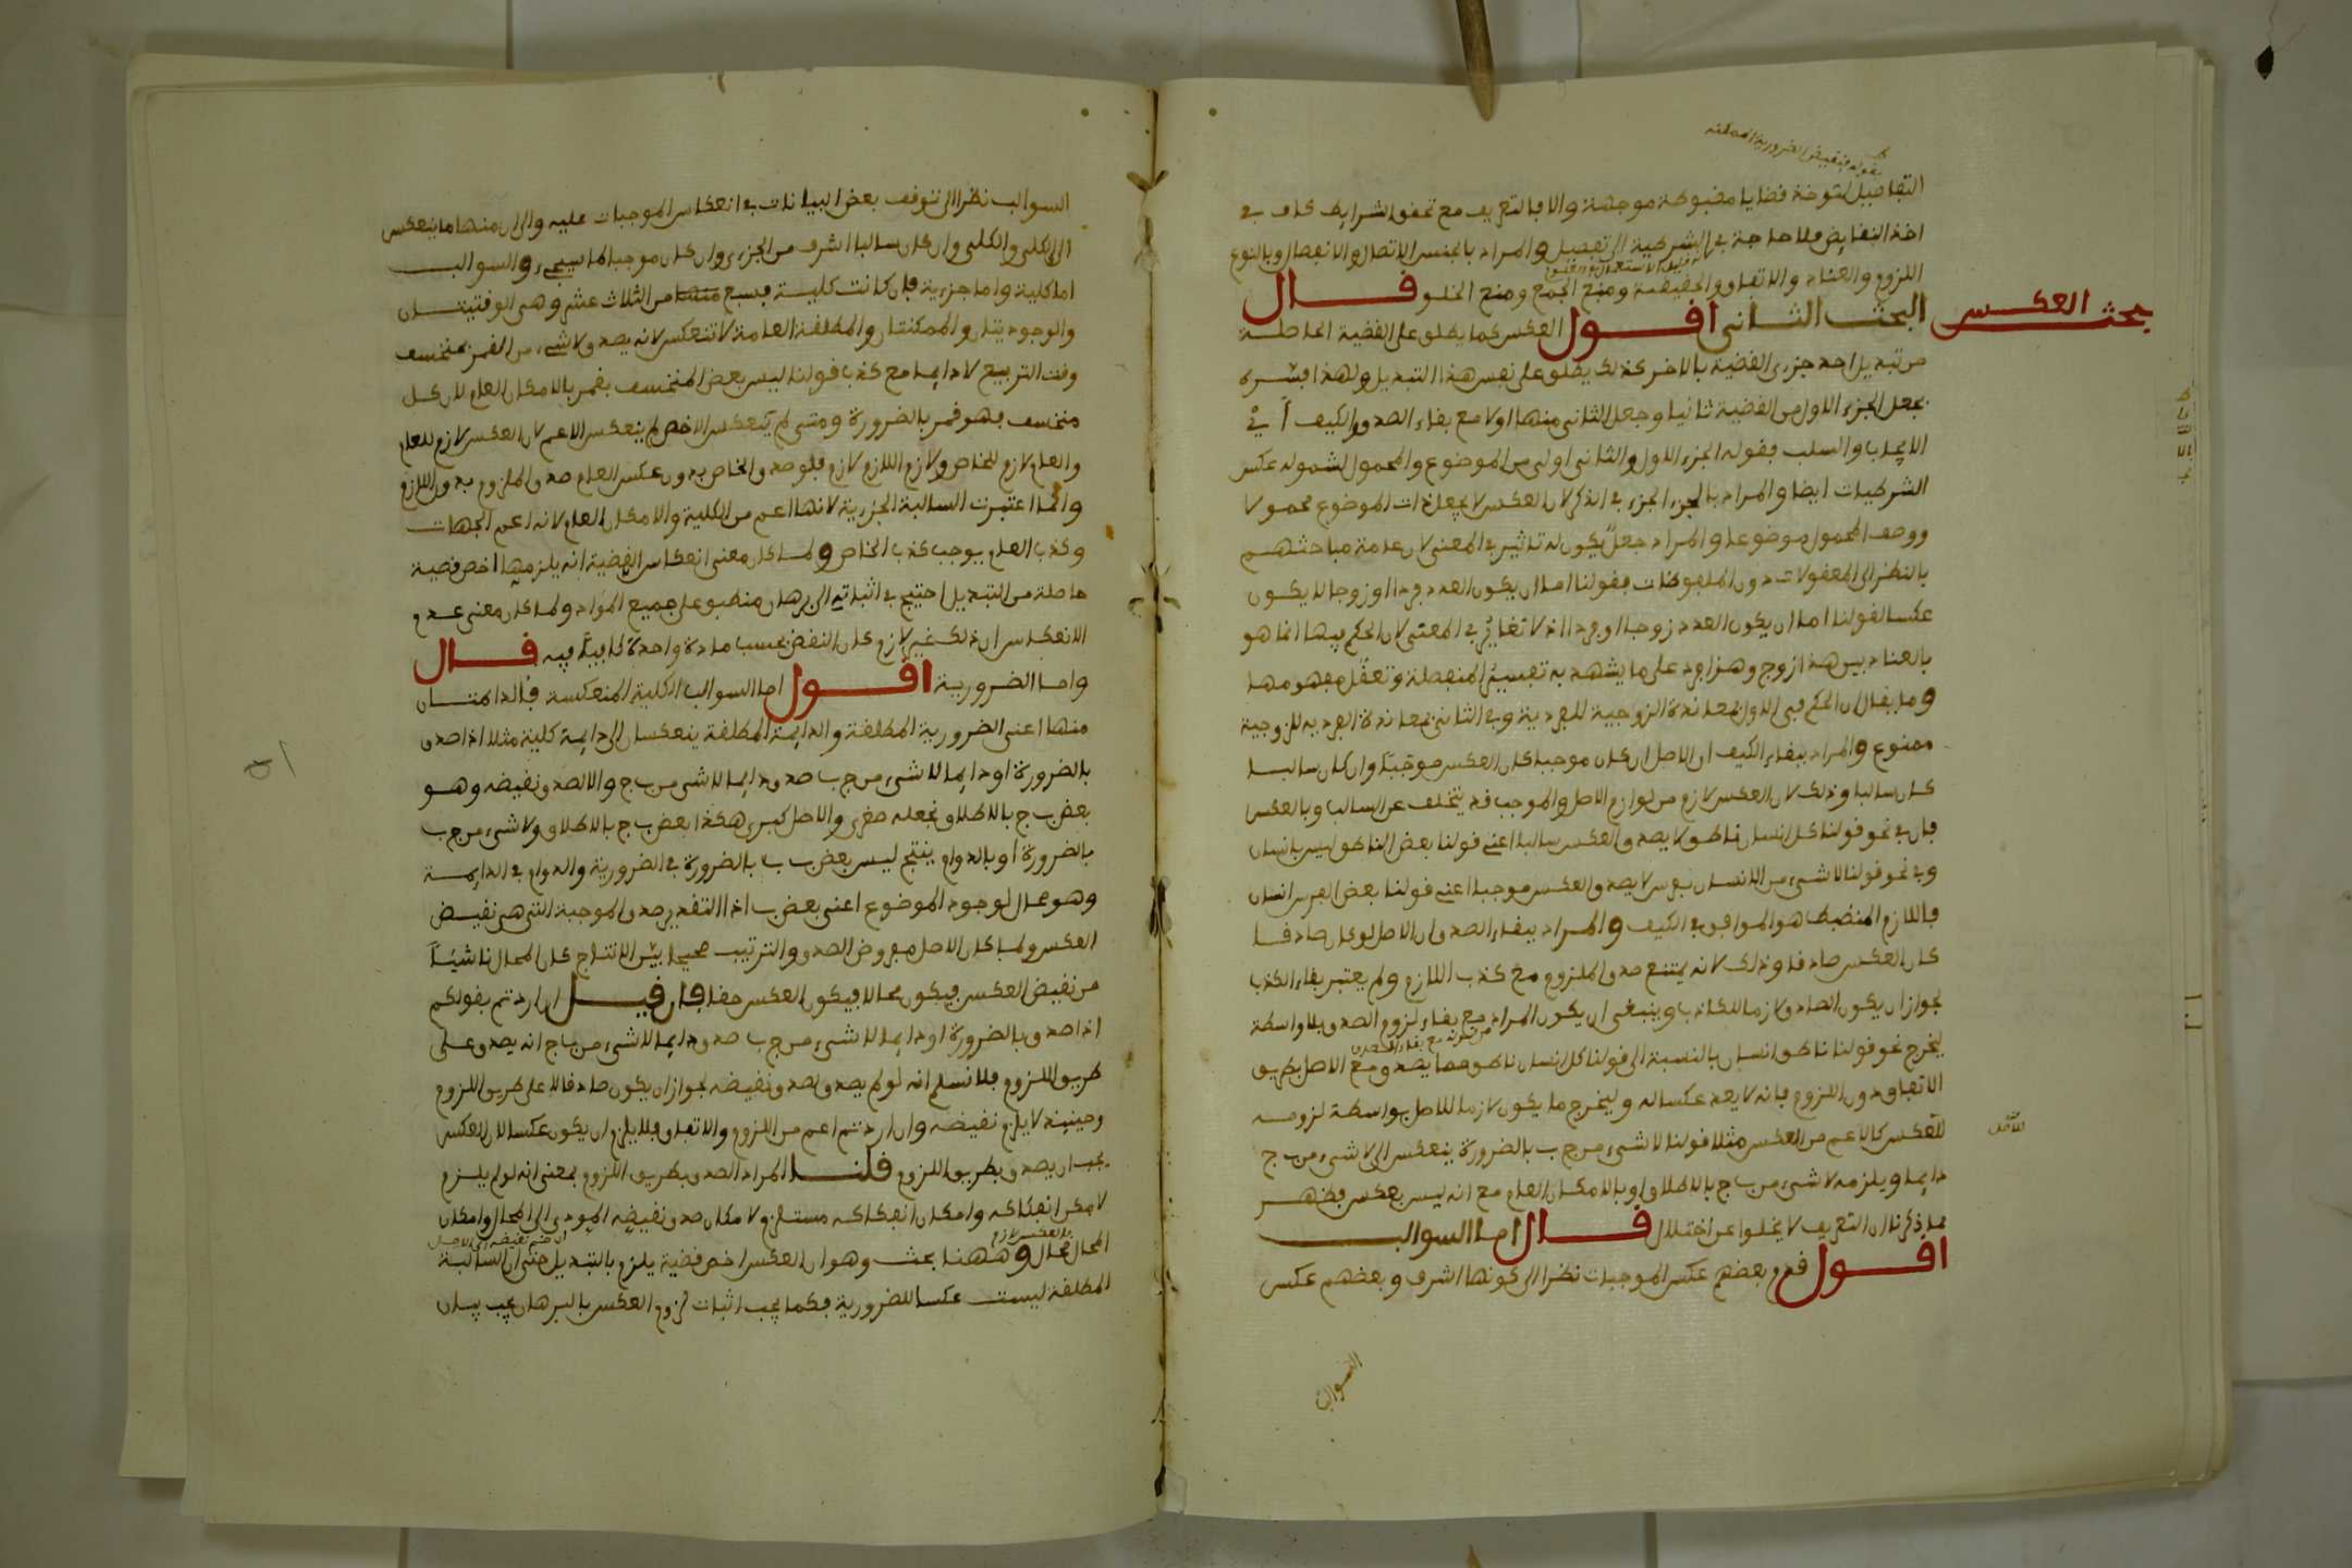 بقوله فنقيض الضرورية الممكنة
التفاصيل لتوخذ قضايا مضبوطة موجهة والا فالتعريف مع تحقق الشرايط كاف في
اخذ النقايض فلا حاجة في الشرطية الى تفصيل والمراد بالجنس الاتصال والانفصال وبالنوع
اللزوم والعناد والاتفاق والحقيقة ومنع الجمع ومنع الخلو قال
بحث العكس
البحث الثاني اقول العكس كما يطلق على القضية الحاصلة
من تبديل احد جزءى القضية بالاخر كذلك يطلق على نفس هذا التبديل ولهذا فسره
بجعل الجزء الاول من القضية ثانيا وجعل الثاني منها اولا مع بقاء الصدق والكيف اي في
الايجاب والسلب فقوله الجزء الاول والثاني اولى من الموضوع والمحمول لشموله عكس
الشرطيات ايضا والمراد بالجزء الجزء في الذكر لان العكس لا يجعل ذات الموضوع محمولا
ووصف المحمول موضوعا والمراد جعل يكون له تاثير في المعنى لان عامة مباحثهم
بالنظر الى المعقولات دون الملفوظات فقولنا اما ان يكون العدد فردا او زوجا لا يكون
عكسا لقولنا اما ان يكون العدد زوجا او فردا اذ لا تغاير في المعنى لان الحكم فيها انما هو
بالعناد بين هذا زوج وهذا فرد على ما يشهد به تفسير المنفصلة وتعقل مفهومها
وما يقال ان الحكم في الاول بمعاندة الزوجية للفردية وفي الثاني بمعاندة الفردية للزوجية
ممنوع والمراد ببقاء الكيف ان الاصل ان كان موجبا كان العكس موجبا وان كان سالبا
كان سالبا وذلك لان العكس لازم من لوازم الاصل والموجب قد يتخلف عن السالب وبالعكس
فان في نحو قولنا كل انسان ناطق لا يصدق العكس سالبا اعني قولنا بعض الناطق ليس بانسان
وفي نحو قولنا لا شيء من الانسان بفرس لا يصدق العكس موجبا اعني قولنا بعض الفرس انسان
فاللازم المنضبط هو الموافق في الكيف والمراد ببقاء الصدق ان الاصل لو كان صادقا
كان العكس صادقا وذلك لانه يمتنع صدق الملزوم مع كذب اللازم ولم يعتبر بقاء الكذب
لجواز ان يكون الصادق لازما للكاذب وينبغي ان يكون المراد مع بقاء لزوم الصدق بلا واسطة
من قوله مع بقاء الصدق
ليخرج نحو قولنا ناطق انسان بالنسبة الى قولنا كل انسان ناطق مما يصدق مع الاصل بطريق
الاتفاق دون اللزوم فانه لا يعد عكسا له وليخرج ما يكون لازما للاصل بواسطة لزومه
للعكس كالاعم من العكس مثلا قولنا لا شيء من ج ب بالضرورة ينعكس الى لا شيء من ب ج
دايما ويلزمه لا شيء من ب ج بالاطلاق او بالامكان العام مع انه ليس بعكس فظهر
بما ذكرنا ان التعريف لا يخلوا عن اختلال قال اما السوالب
اقول قدم بعضهم عكس الموجبات نظرا الى كونها اشرف وبعضهم عكس
السوالب
السوالب نظرا الى توقف بعض البيانات في انعكاس الموجبات عليه والى ان منها ما ينعكس
الى الكلي والكلي وان كان سالبا اشرف من الجزءى وان كان موجبا كما سيجيء والسوالب
اما كلية واما جزءية فان كانت كلية فسبع منها من الثلاث عشر وهي الوقتيتان
والوجوديتان والممكنتان والمطلقة العامة لا تنعكس لانه يصدق لا شيء من القمر بمنخسف
وقت التربيع لا دايما مع كذب قولنا ليس بعض المنخسف بقمر بالامكان العام لان كل
منخسف فهو قمر بالضرورة ومتى لم ينعكس الاخص لم ينعكس الاعم لان العكس لازم للعام
والعام لازم للخاص ولازم اللازم لازم فلو صدق الخاص بدون عكس العام صدق الملزوم بدون اللازم
وانما اعتبرت السالبة الجزءية لانها اعم من الكلية والامكان العام لانه اعم الجهات
وكذب العام يوجب كذب الخاص ولما كان معنى انعكاس القضية انه يلزمها اخص قضية
حاصلة من التبديل احتيج في اثباته الى برهان منطبق على جميع المواد ولما كان معنى عدم
الانعكاس ان ذلك غير لازم كان النقض بحسب مادة واحدة كافيا فيه قال
واما الضرورية اقول اما السوالب الكلية المنعكسة فالدايمتان
منها اعني الضرورية المطلقة والدايمة المطلقة ينعكسان الى دايمة كلية مثلا اذا صدق
بالضرورة او دايما لا شيء من ج ب صدق دايما لا شيء من ب ج والا لصدق نقيضه وهو
بعض ب ج بالاطلاق نجعله صغرى والاصل كبرى هكذا بعض ب ج بالاطلاق ولا شيء من ج ب
بالضرورة او بالدوام ينتج ليس بعض ب ب بالضرورة في الضرورية والدوام في الدايمة
وهو محال لوجود الموضوع اعني بعض ب اذ التقدير صدق الموجبة التي هي نقيض
العكس ولما كان الاصل مفروض الصدق والترتيب صحيحا بين الانتاج كان المحال ناشئا
من نقيض العكس فيكون محالا فيكون العكس حقا فان قيل ان اردتم بقولكم
اذا صدق بالضرورة او دايما لا شيء من ج ب صدق دايما لا شيء من ب ج انه يصدق على
طريق اللزوم فلا نسلم انه لو لم يصدق لصدق نقيضه لجواز ان يكون صادقا لا على طريق اللزوم
وحينئذ لا يلزم نقيضه وان اردتم اعم من اللزوم والاتفاق فلا يلزم ان يكون عكسا لان العكس
يجب ان يصدق بطريق اللزوم قلنا المراد الصدق بطريق اللزوم بمعنى انه لو لم يلزم
لامكن انفكاكه وامكان انفكاكه مستلزم لامكان صدق نقيضه المودى الى المحال وامكان
المحال محال وههنا بحث وهو ان العكس اخص قضية يلزم بالتبديل حتى ان السالبة
المطلقة ليست عكسا للضرورية فكما يجب اثبات لزوم العكس بالبرهان يجب بيان